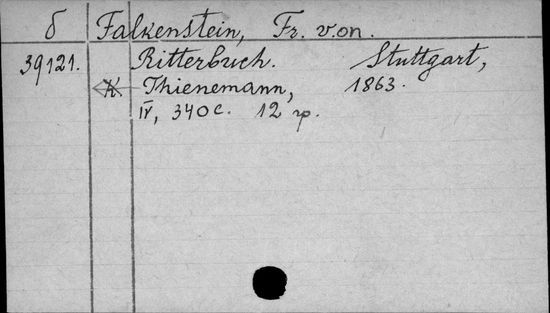 б Falkenstein, Fr. von.
39121. Ritterbuch. Stuttgart,
K Thienemann, 1863.
IV, 340 c. 12 гр.